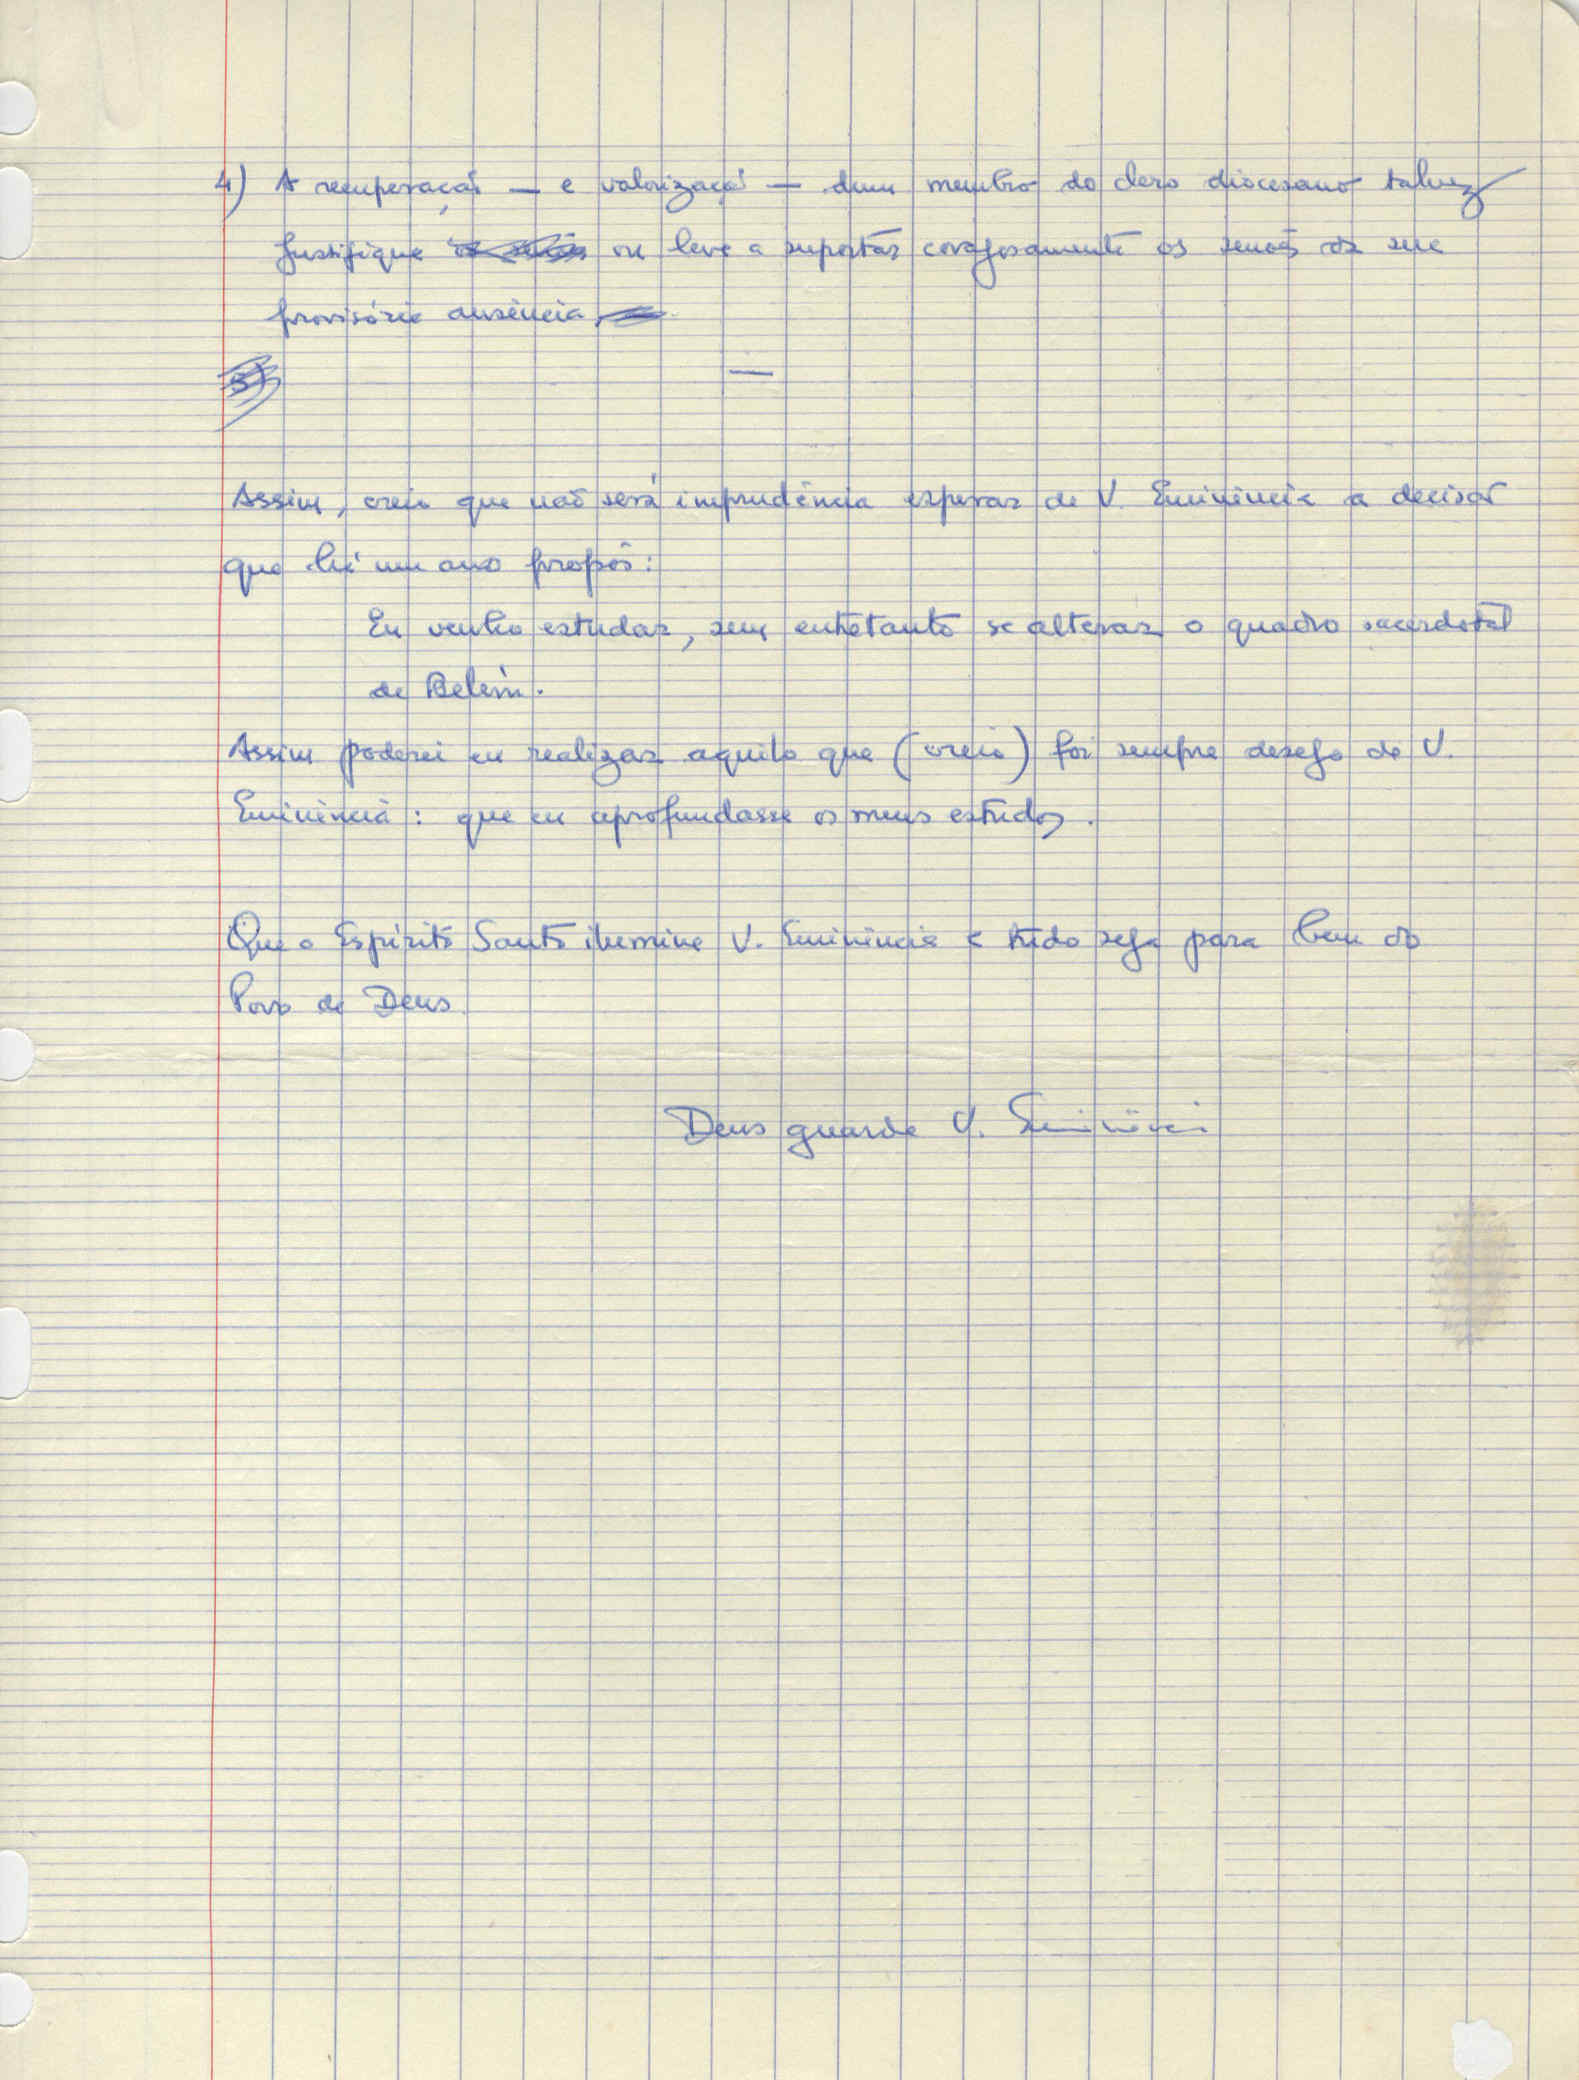 4) A recuperação — e valorização — dum membro do clero diocesano talvez
justifique ou leve a suportar corajosamente os senões da sua
provisória ausência
—
Assim, creio que não será imprudência esperar de V. Eminência a decisão
que há um ano propôs:
Eu venho estudar, sem entretanto se alterar o quadro sacerdotal
de Belém.
Assim poderei eu realizar aquilo que (creio) foi sempre desejo de V.
Eminência: que eu aprofundasse os meus estudos.
Que o Espírito Santo ilumine V. Eminência e tudo seja para bem do
Povo de Deus.
Deus guarde V. Eminência